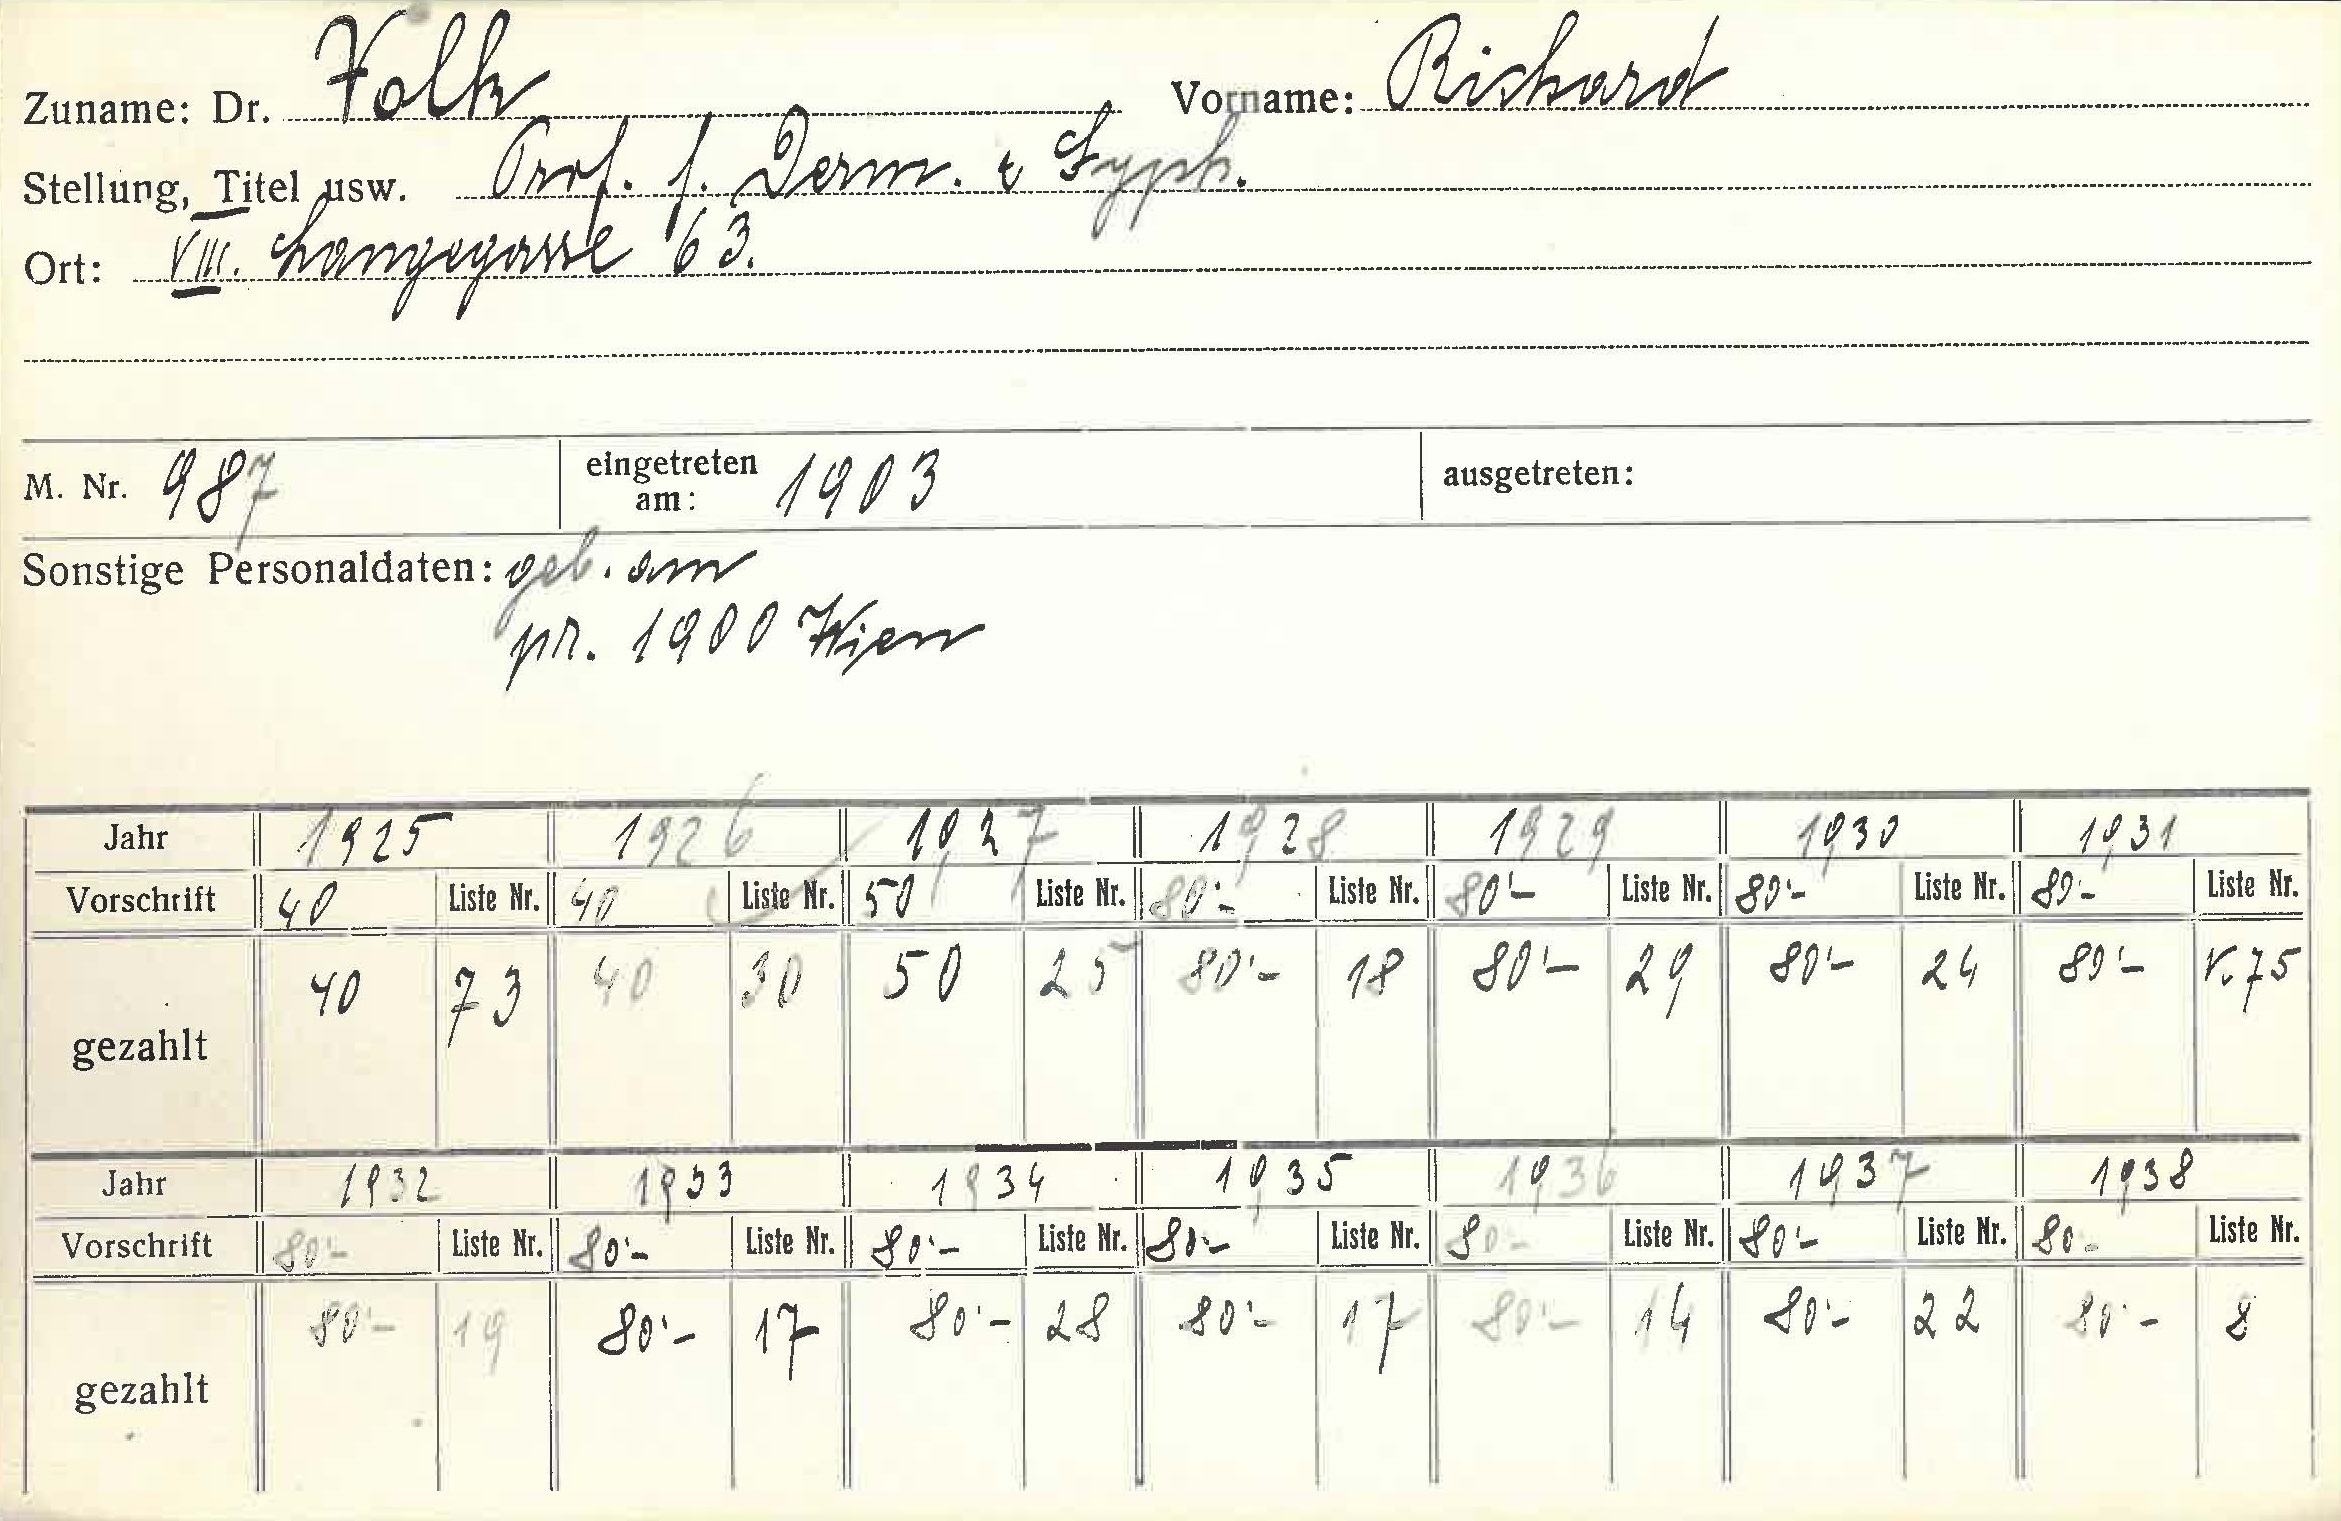 Zuname: Dr. Volk Vorname: Richard
Stellung, Titel usw. Prof. f. Derm. & Syph.
Ort: VIII. Langegasse 63.
M. Nr. 987 eingetreten am: 1903 ausgetreten:
Sonstige Personaldaten: geb. am
pr. 1900 Wien
Jahr 1925 1926 1927 1928 1929 1930 1931
Vorschrift 40 Liste Nr. 40 Liste Nr. 50 Liste Nr. 80'- Liste Nr. 80'- Liste Nr. 80'- Liste Nr. 80'- Liste Nr.
gezahlt 40 73 40 30 50 25 80'- 18 80'- 29 80'- 24 80'- V. 75
Jahr 1932 1933 1934 1935 1936 1937 1938
Vorschrift 80'- Liste Nr. 80'- Liste Nr. 80'- Liste Nr. 80'- Liste Nr. 80- Liste Nr. 80'- Liste Nr. 80- Liste Nr.
gezahlt 80'- 19 80'- 17 80'- 28 80'- 17 80'- 14 80'- 22 80'- 8